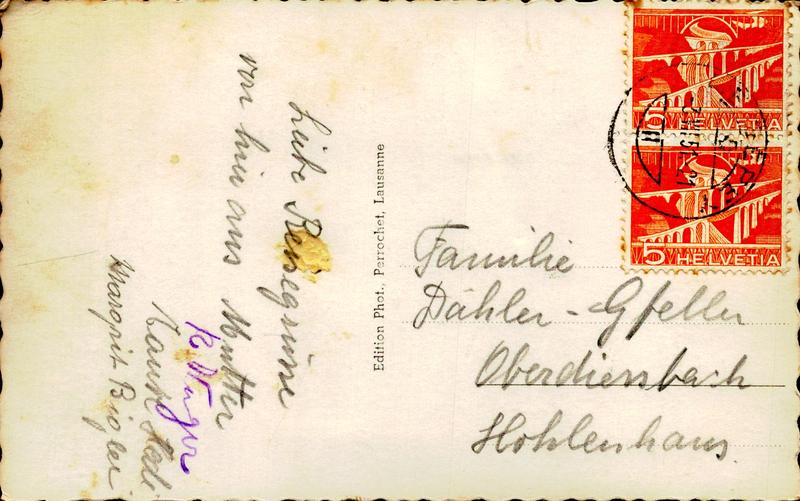 Liebe Reisegrüsse
von hier aus Mutter
Margrit Bigler
Edition Phot., Perrochet, Lausanne
5 HELVETIA
5 HELVETIA
Familie
Dähler - Gfeller
Oberdiessbach
Hohlenhaus.